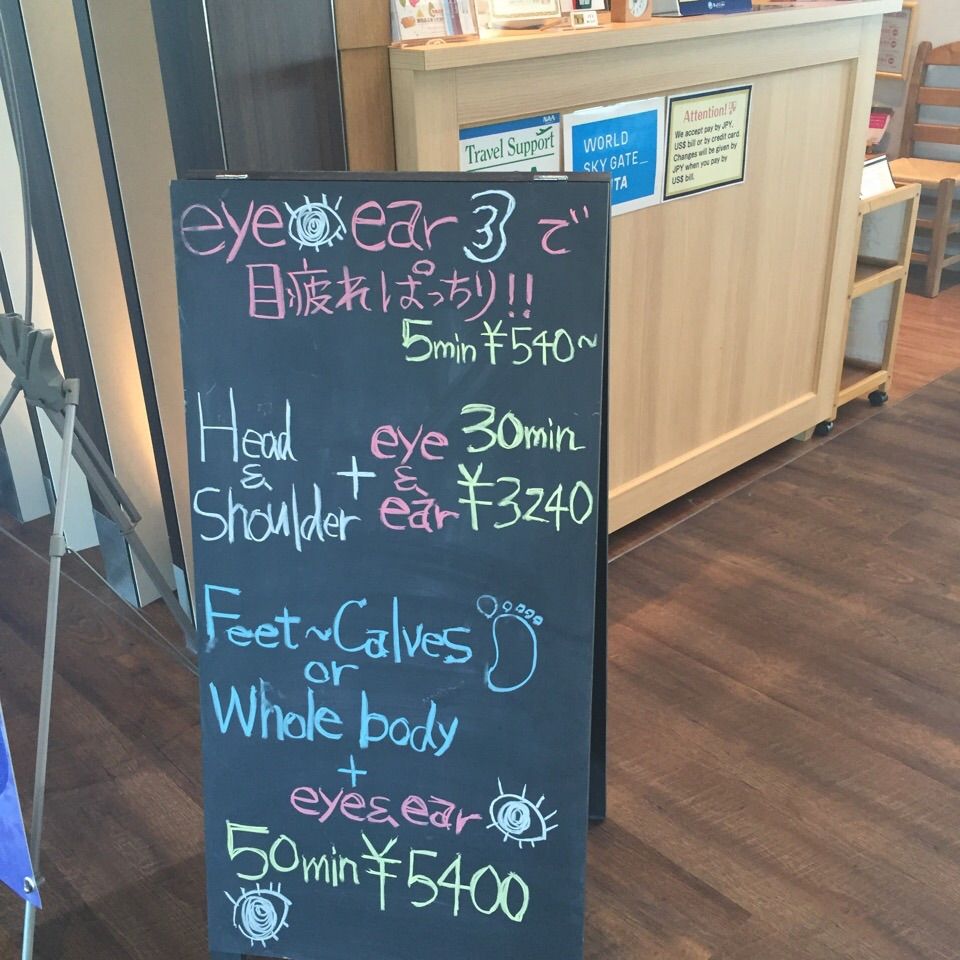 eye ear で
目疲ればっちり!!
5min ¥540~
Head & Shoulder + eye & ear 30min ¥3240
Feet~Calves
or
Whole body
+
eye&ear
50min ¥5400
NAA
Travel Support
WORLD
SKY GATE_
ITA
Attention!
We accept pay by JPY,
US$ bill or by credit card.
Changes will be given by
JPY when you pay by
US$ bill.